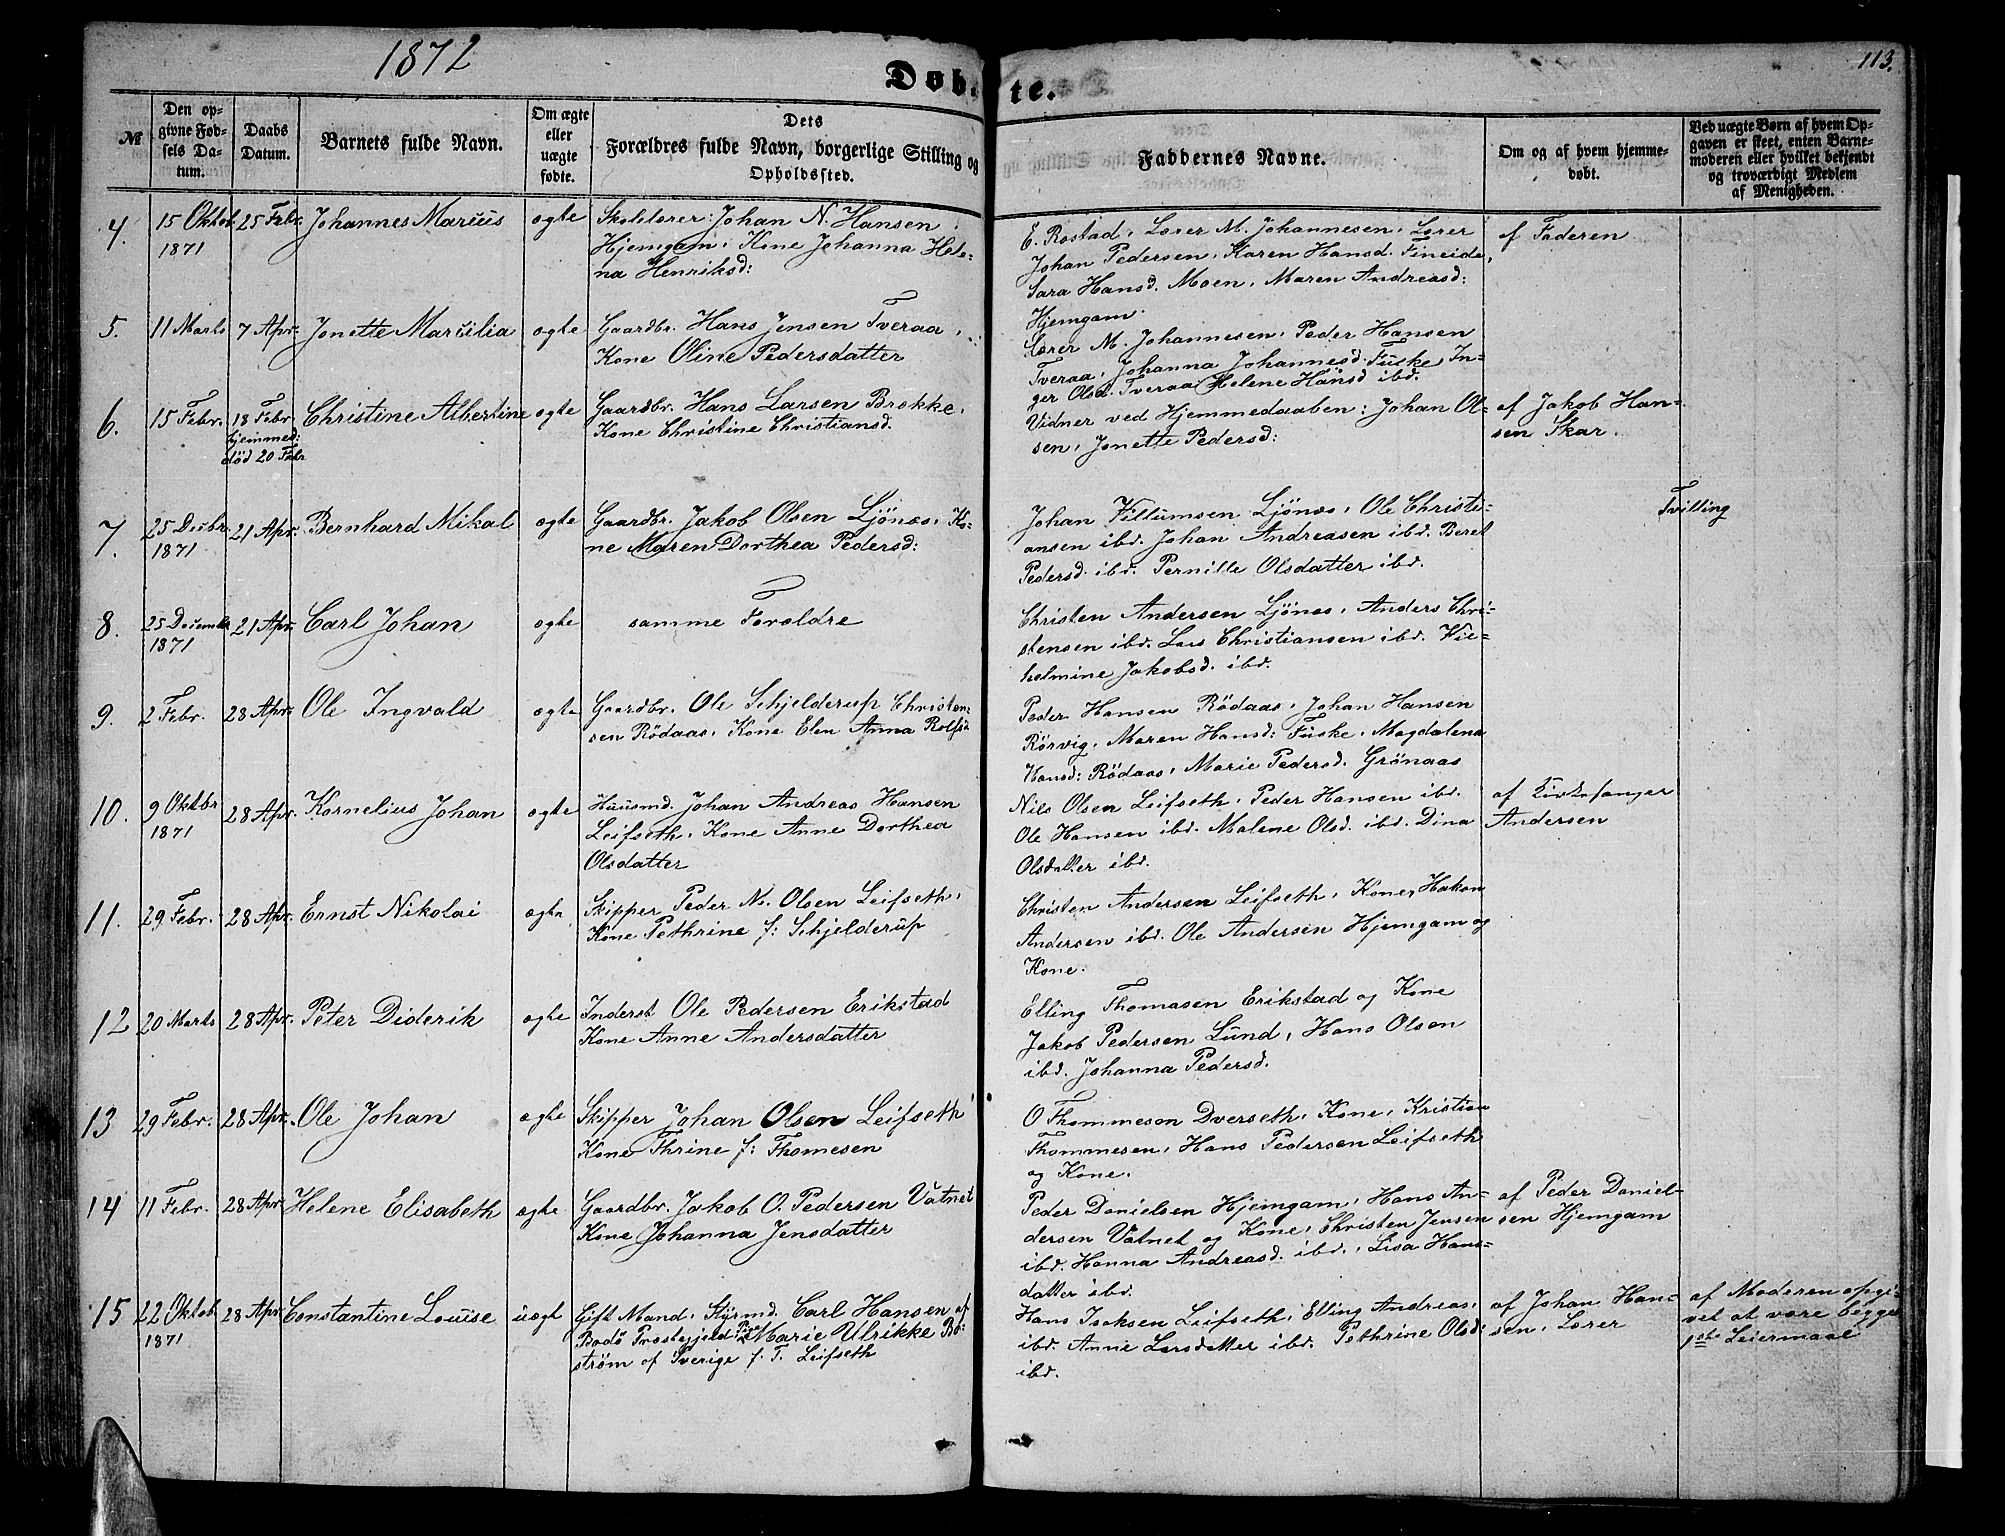 1872
113.
Døbte.
№
Den opgivne Fødsels Datum.
Daabs Datum.
Barnets fulde Navn.
Om ægte eller uægte fødte.
Dets Forældres fulde Navn, borgerlige Stilling og Opholdssted.
Faddernes Navne.
Om og af hvem hjemmedøbt.
Ved uægte Børn af hvem Opgaven er skeet, enten Barnemoderen eller hvilket bekjendt og troværdigt Medlem af Menigheden.
4. 15 Oktob. 1871 25 Febr. Johannes Marius ægte
Skolelærer: Johan N. Hansen,
Hjemgam, Kone Johanna Hele-
na Henriksd:
E. Rostad, Lærer M. Johannesen, Lærer
Johan Pedersen, Karen Hansd. Fineide,
Sara Hansd. Moen, Maren Andreasd:
Hjemgam.
af Faderen
5. 11 Marts 7 Apr. Jonette Marcilia ægte
Gaardbr. Hans Jensen Tveraa,
Kone Oline Pedersdatter
Lærer M. Johannesen, Peder Hansen
Tveraa, Johanna Johannesd. Fuske, In-
ger Olsd. Tveraa, Helene Hansd ibd.
6. 15 Febr. 18 Febr hjemmed: død 20 Febr Christine Albertine ægte
Gaardbr. Hans Larsen Brække,
Kone Christine Christiansd.
Vidner ved Hjemmedaaben: Johan Ol-
sen, Jonette Pedersd:
af Jakob Han-
sen Skar.
7. 25 Decbr. 1871 21 Apr. Bernhard Mikal ægte
Gaardbr. Jakob Olsen Ljönæs, Ko-
ne Maren Dorthea Pedersd:
Johan Villumsen Ljönæs, Ole Christi-
ansen ibd. Johan Andreasen ibd. Beret
Pedersd. ibd. Pernille Olsdatter ibd.
Tvilling
8. 25 Decembr 1871 21 Apr. Carl Johan ægte
samme Forældre
Christen Andersen Ljönæs, Anders Chri-
stensen ibd. Lars Christiansen ibd. Vil-
helmine Jakobsd. ibd.
9. 2 Febr. 28 Apr. Ole Ingvald ægte
Gaardbr. Ole Schjelderup Christen-
sen Rödaas, Kone Elen Anna Rolfsd
Peder Hansen Rödaas, Johan Hansen
Rörvig, Maren Hansd: Fuske, Magdalena
Hansd: Rödaas, Marie Pedersd. Grönaas
10. 9 Oktbr 1871 28 Apr. Kornelius Johan ægte
Huusmd. Johan Andreas Hansen
Leifseth, Kone Anne Dorthea
Olsdatter
Nils Olsen Leifseth, Peder Hansen ibd.
Ole Hansen ibd. Malene Olsd. ibd. Dina
Olsdatter ibd.
af Kirkesanger
Andersen
11. 29 Febr. 28 Apr. Ernst Nikolai ægte
Skipper Peder N. Olsen Leifseth,
Kone Pethrine f: Schjelderup
Christen Andersen Leifseth, Kone, Hakon
Andersen ibd. Ole Andersen Hjemgam og
Kone.
12 20 Marts 28 Apr. Peter Diderik ægte
Inderst Ole Pedersen Erikstad
Kone Anne Andersdatter
Elling Thomasen Erikstad og Kone
Jakob Pedersen Lund, Hans Olsen
ibd. Johanna Pedersd.
13 29 Febr. 28 Apr. Ole Johan ægte
Skipper Johan Olsen Leifseth
Kone Thrine f: Thomesen
O Thommesen Dverseth, Kone, Kristian
Thommesen, Hans Pedersen Leifseth
og Kone.
14 11 Febr. 28 Apr. Helene Elisabeth ægte
Gaardbr. Jakob O. Pedersen Vatnet
Kone Johanna Jensdatter
Peder Danielsen Hjemgam, Hans An-
dersen Vatnet og Kone, Christen Jensen
ibd. Hanna Andreasd. ibd., Lisa Hans-
datter ibd.
af Peder Daniel-
sen Hjemgam
15 22 Oktob. 1871 28 Apr. Constantine Louise uægt
Gift Mand, Styrmd. Carl Hansen af
Bodö Præstegjeld, Pige Marie Ulrikke Bo-
ström af Sverige f. T. Leifseth
Hans Isaksen Leifseth, Elling Andreas.
ibd. Anne Larsdatter ibd. Pethrine Olsd:
ibd.
af Johan Han-
sen, Lærer
af Moderen opgi-
vet at være begges
1ste Leiermaal